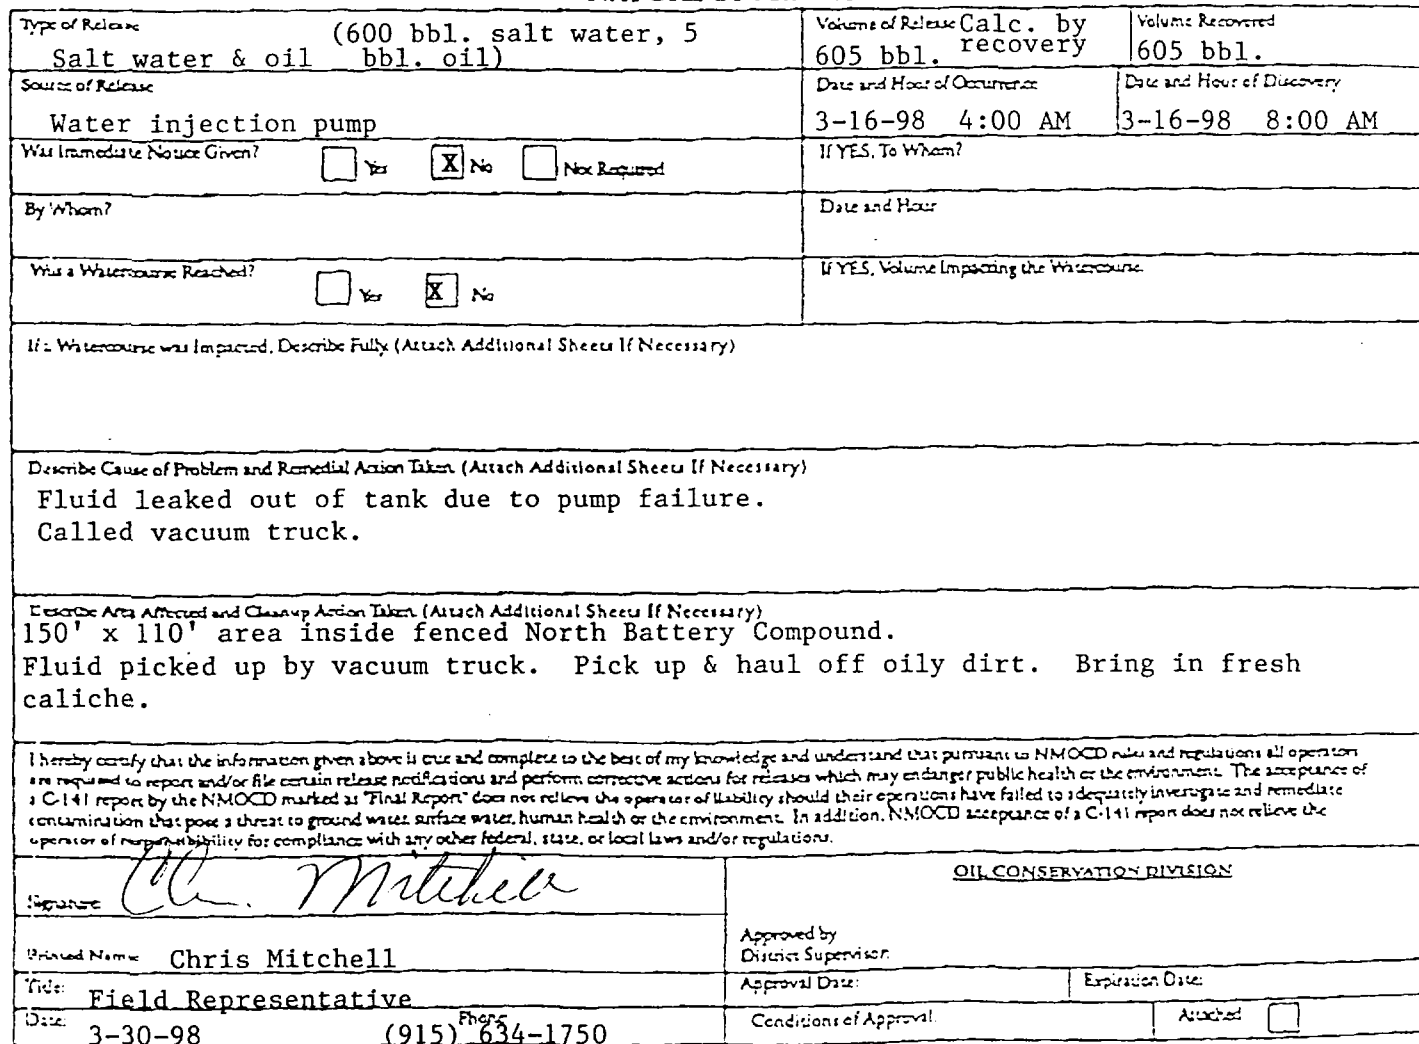 Type of Release (600 bbl. salt water, 5
Salt water & oil bbl. oil)
Volume of Release Calc. by
605 bbl. recovery
Volume Recovered
605 bbl.
Source of Release
Water injection pump
Date and Hour of Occurrence
3-16-98 4:00 AM
Date and Hour of Discovery
3-16-98 8:00 AM
Was Immediate Notice Given?
Yes X No Not Required
If YES, To Whom?
By Whom?
Date and Hour
Was a Watercourse Reached?
Yes X No
If YES, Volume Impacting the Watercourse.
If a Watercourse was Impacted, Describe Fully. (Attach Additional Sheets If Necessary)
Describe Cause of Problem and Remedial Action Taken. (Attach Additional Sheets If Necessary)
Fluid leaked out of tank due to pump failure.
Called vacuum truck.
Describe Area Affected and Cleanup Action Taken. (Attach Additional Sheets If Necessary)
150' x 110' area inside fenced North Battery Compound.
Fluid picked up by vacuum truck. Pick up & haul off oily dirt. Bring in fresh
caliche.
I hereby certify that the information given above is true and complete to the best of my knowledge and understand that pursuant to NMOCD rules and regulations all operators
are required to report and/or file certain release notifications and perform corrective actions for releases which may endanger public health or the environment. The acceptance of
a C-141 report by the NMOCD marked as "Final Report" does not relieve the operator of liability should their operations have failed to adequately investigate and remediate
contamination that pose a threat to ground water, surface water, human health or the environment. In addition, NMOCD acceptance of a C-141 report does not relieve the
operator of responsibility for compliance with any other federal, state, or local laws and/or regulations.
Signature: Mitchell
Printed Name: Chris Mitchell
Title: Field Representative
Date: 3-30-98 Phone: (915) 634-1750
OIL CONSERVATION DIVISION
Approved by
District Supervisor:
Approval Date:
Expiration Date:
Conditions of Approval:
Attached